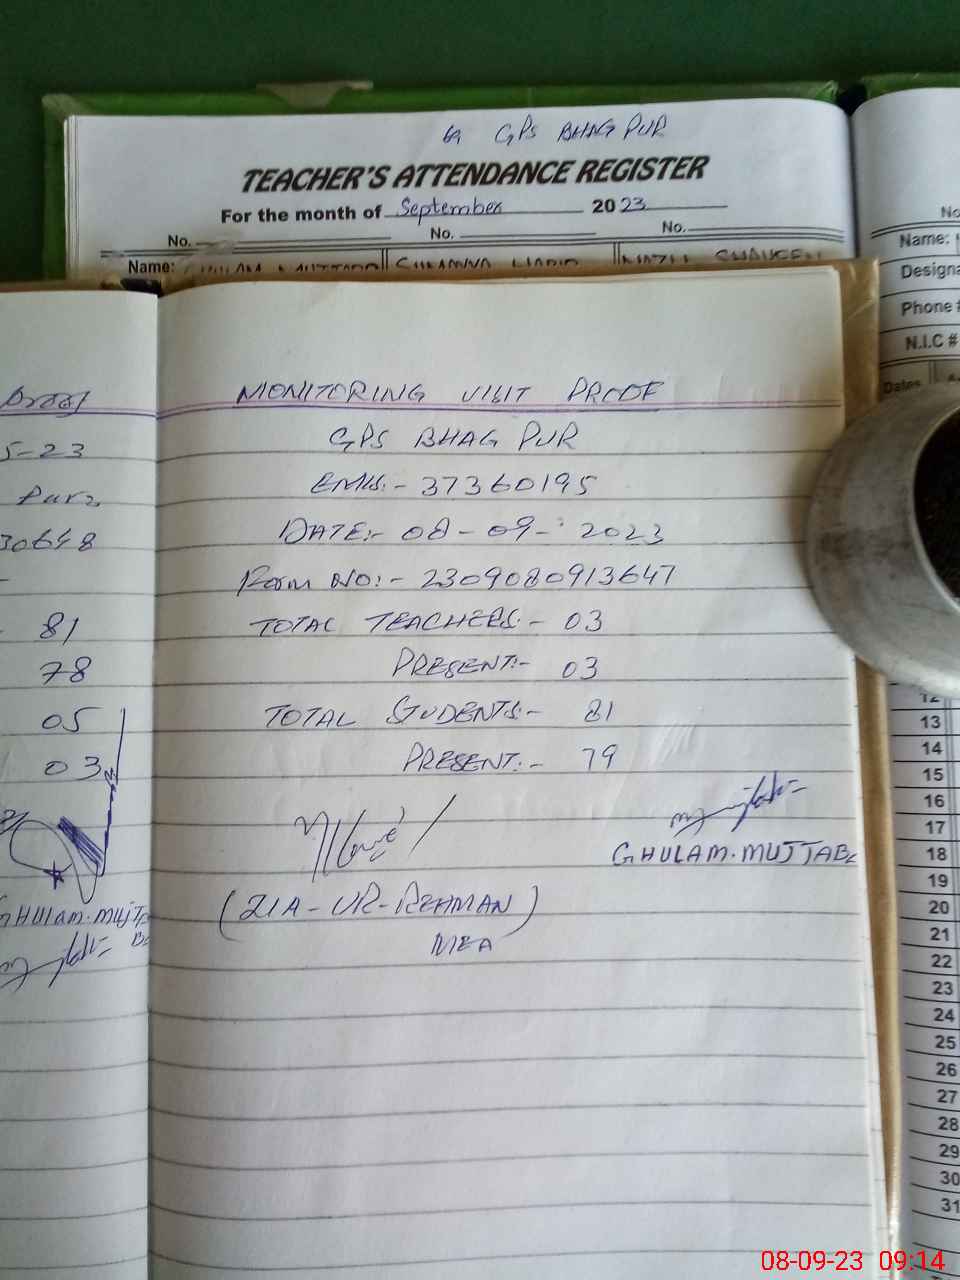 GPS BHAG PUR
TEACHER'S ATTENDANCE REGISTER
For the month of September 2023
No. No. No.
Name: GHULAM MUJTABA SHAUKEEN
No
Name:
Designa
Phone #
N.I.C #
Dates
5-23
30648
81
78
05
03
GHULAM.MUJTA
MONITORING VISIT PROOF
GPS BHAG PUR
EMIS:- 37360195
DATE:- 08-09-2023
Form NO:- 2309080913647
TOTAL TEACHERS:- 03
PRESENT:- 03
TOTAL STUDENTS:- 81
PRESENT:- 79
GHULAM.MUJTABA
(ZIA-UR-REHMAN)
MEA
12
13
14
15
16
17
18
19
20
21
22
23
24
25
26
27
28
29
30
31
08-09-23 09:14